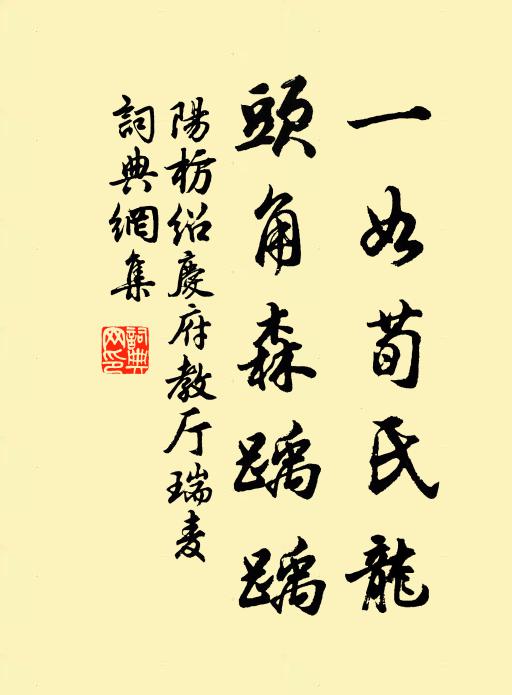 一如荀氏龍
頭角森踽踽
陽枋紹慶府教厅瑞麦
詞典網集
詞典网印